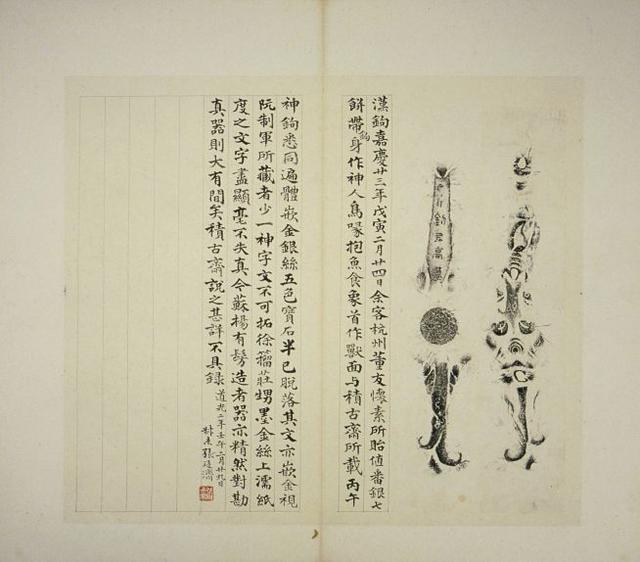 漢鉤嘉慶廿三年戊寅二月廿四日余客杭州董友懷素所貽值番銀七
餅帶鉤身作神人鳥喙抱魚食象首作獸面与積古齋所載丙午
神鉤悉同遍體嵌金銀絲五色寶石半已脫落其文亦嵌金視
阮制軍所藏者少一神字文不可拓徐籀莊甥墨金絲上濡紙
度之文字盡顯毫不失真今蘇揚有髣造者器亦精然對勘
真器則大有間矣積古齋說之甚詳不具錄
道光二年壬午二月廿九日
叔未張廷濟